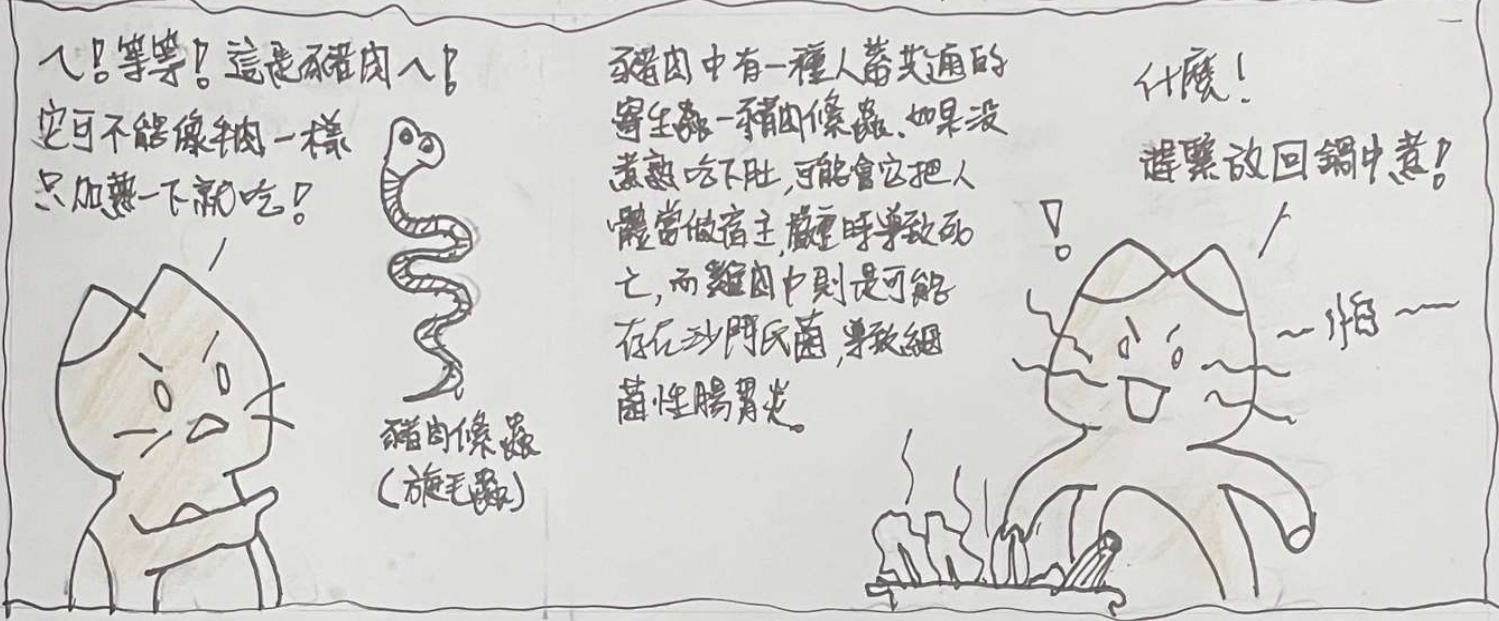 ㄟ!等等!這是豬肉ㄟ!
它可不能像牛肉一樣
只加熱一下就吃!
豬肉絛蟲
(旋毛蟲)
豬肉中有一種人蓄共通的
寄生蟲-豬肉絛蟲.如果沒
煮熟吃下肚,可能會它把人
體當做宿主,嚴重時導致死
亡,而雞肉中則是可能
存在沙門氏菌,導致細
菌性腸胃炎。
什麼!
趕緊放回鍋中煮!
!
~怕~